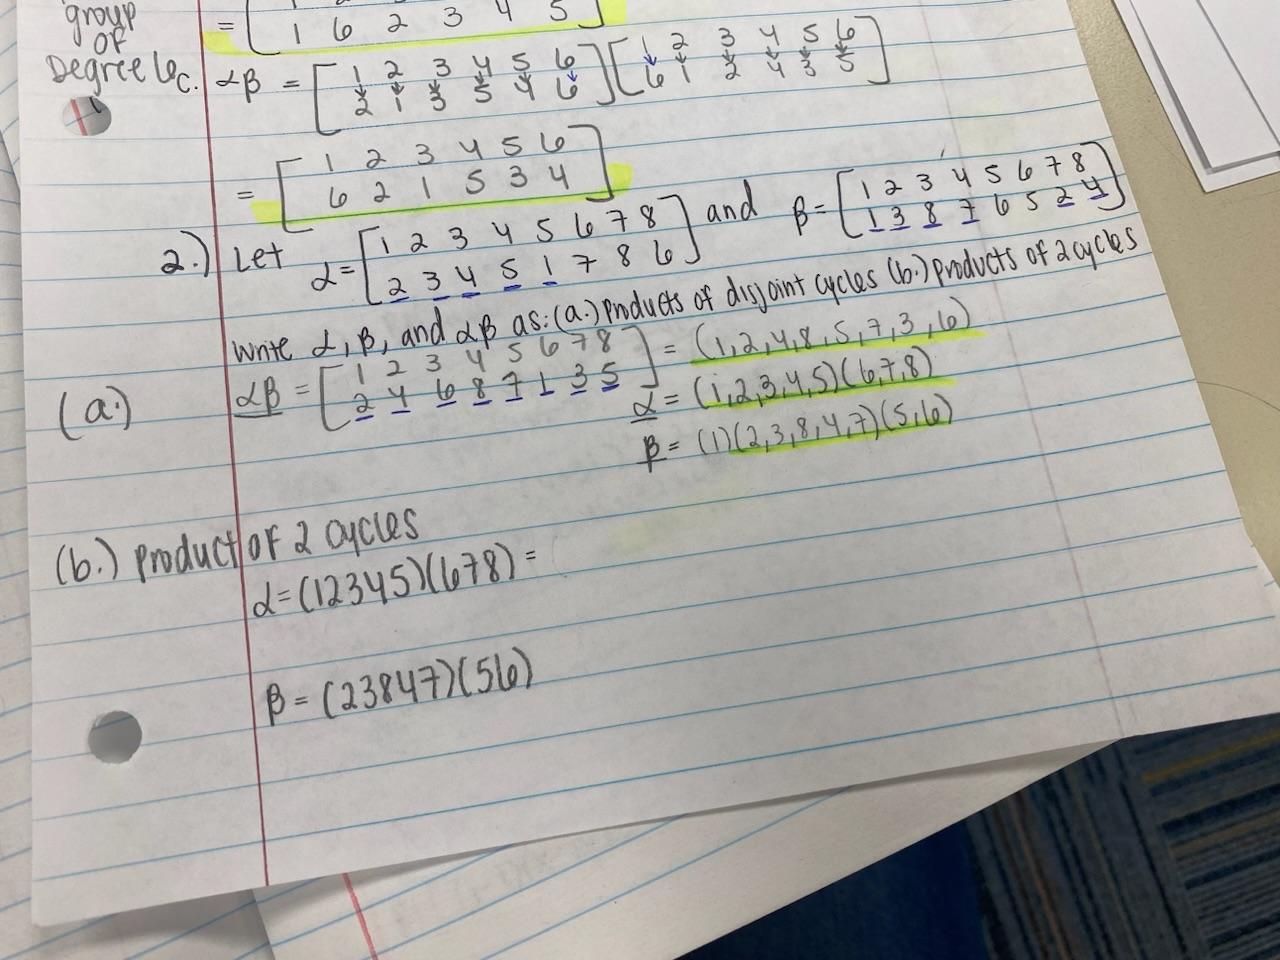 group
of
Degree 6
= [ 1 6 2 3 4 5 ]
c. αβ = [ 1 2 3 4 5 6 ] [ 1 2 3 4 5 6 ]
2 1 3 5 4 6 6 1 2 4 3 5
= [ 1 2 3 4 5 6 ]
6 2 1 5 3 4
2.) Let α = [ 1 2 3 4 5 6 7 8 ] and β = [ 1 2 3 4 5 6 7 8 ]
2 3 4 5 1 7 8 6 1 3 8 7 6 5 2 4
Write α, β, and αβ as: (a.) products of disjoint cycles (b.) products of 2 cycles
(a.) αβ = [ 1 2 3 4 5 6 7 8 ] = (1,2,4,8,5,7,3,6)
2 4 6 8 7 1 3 5
α = (1,2,3,4,5)(6,7,8)
β = (1)(2,3,8,4,7)(5,6)
(b.) product of 2 cycles
α = (12345)(678) =
β = (23847)(56)